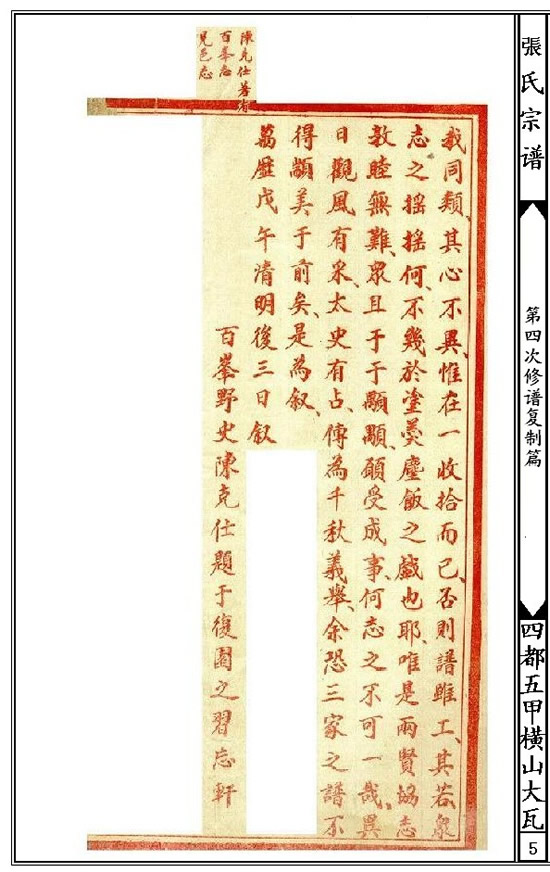 張氏宗谱
第四次修谱复制篇
四都五甲橫山大瓦
5
陳克仕著有
百峯志
見邑志
我同類、其心不異、惟在一收拾而已、否則譜雖工、其若衆
志之摇摇何、不幾於塗羹塵飯之戲也耶、唯是兩賢協志
敦睦無難、眾且于于顒顒、願受成事、何志之不可一哉、異
日觀風有采、太史有占、傳為千秋義舉、余恐三家之譜不
得顓美于前矣、是為叙、
萬歷戊午清明後三日叙
百峯野史陳克仕題于復園之習忘軒